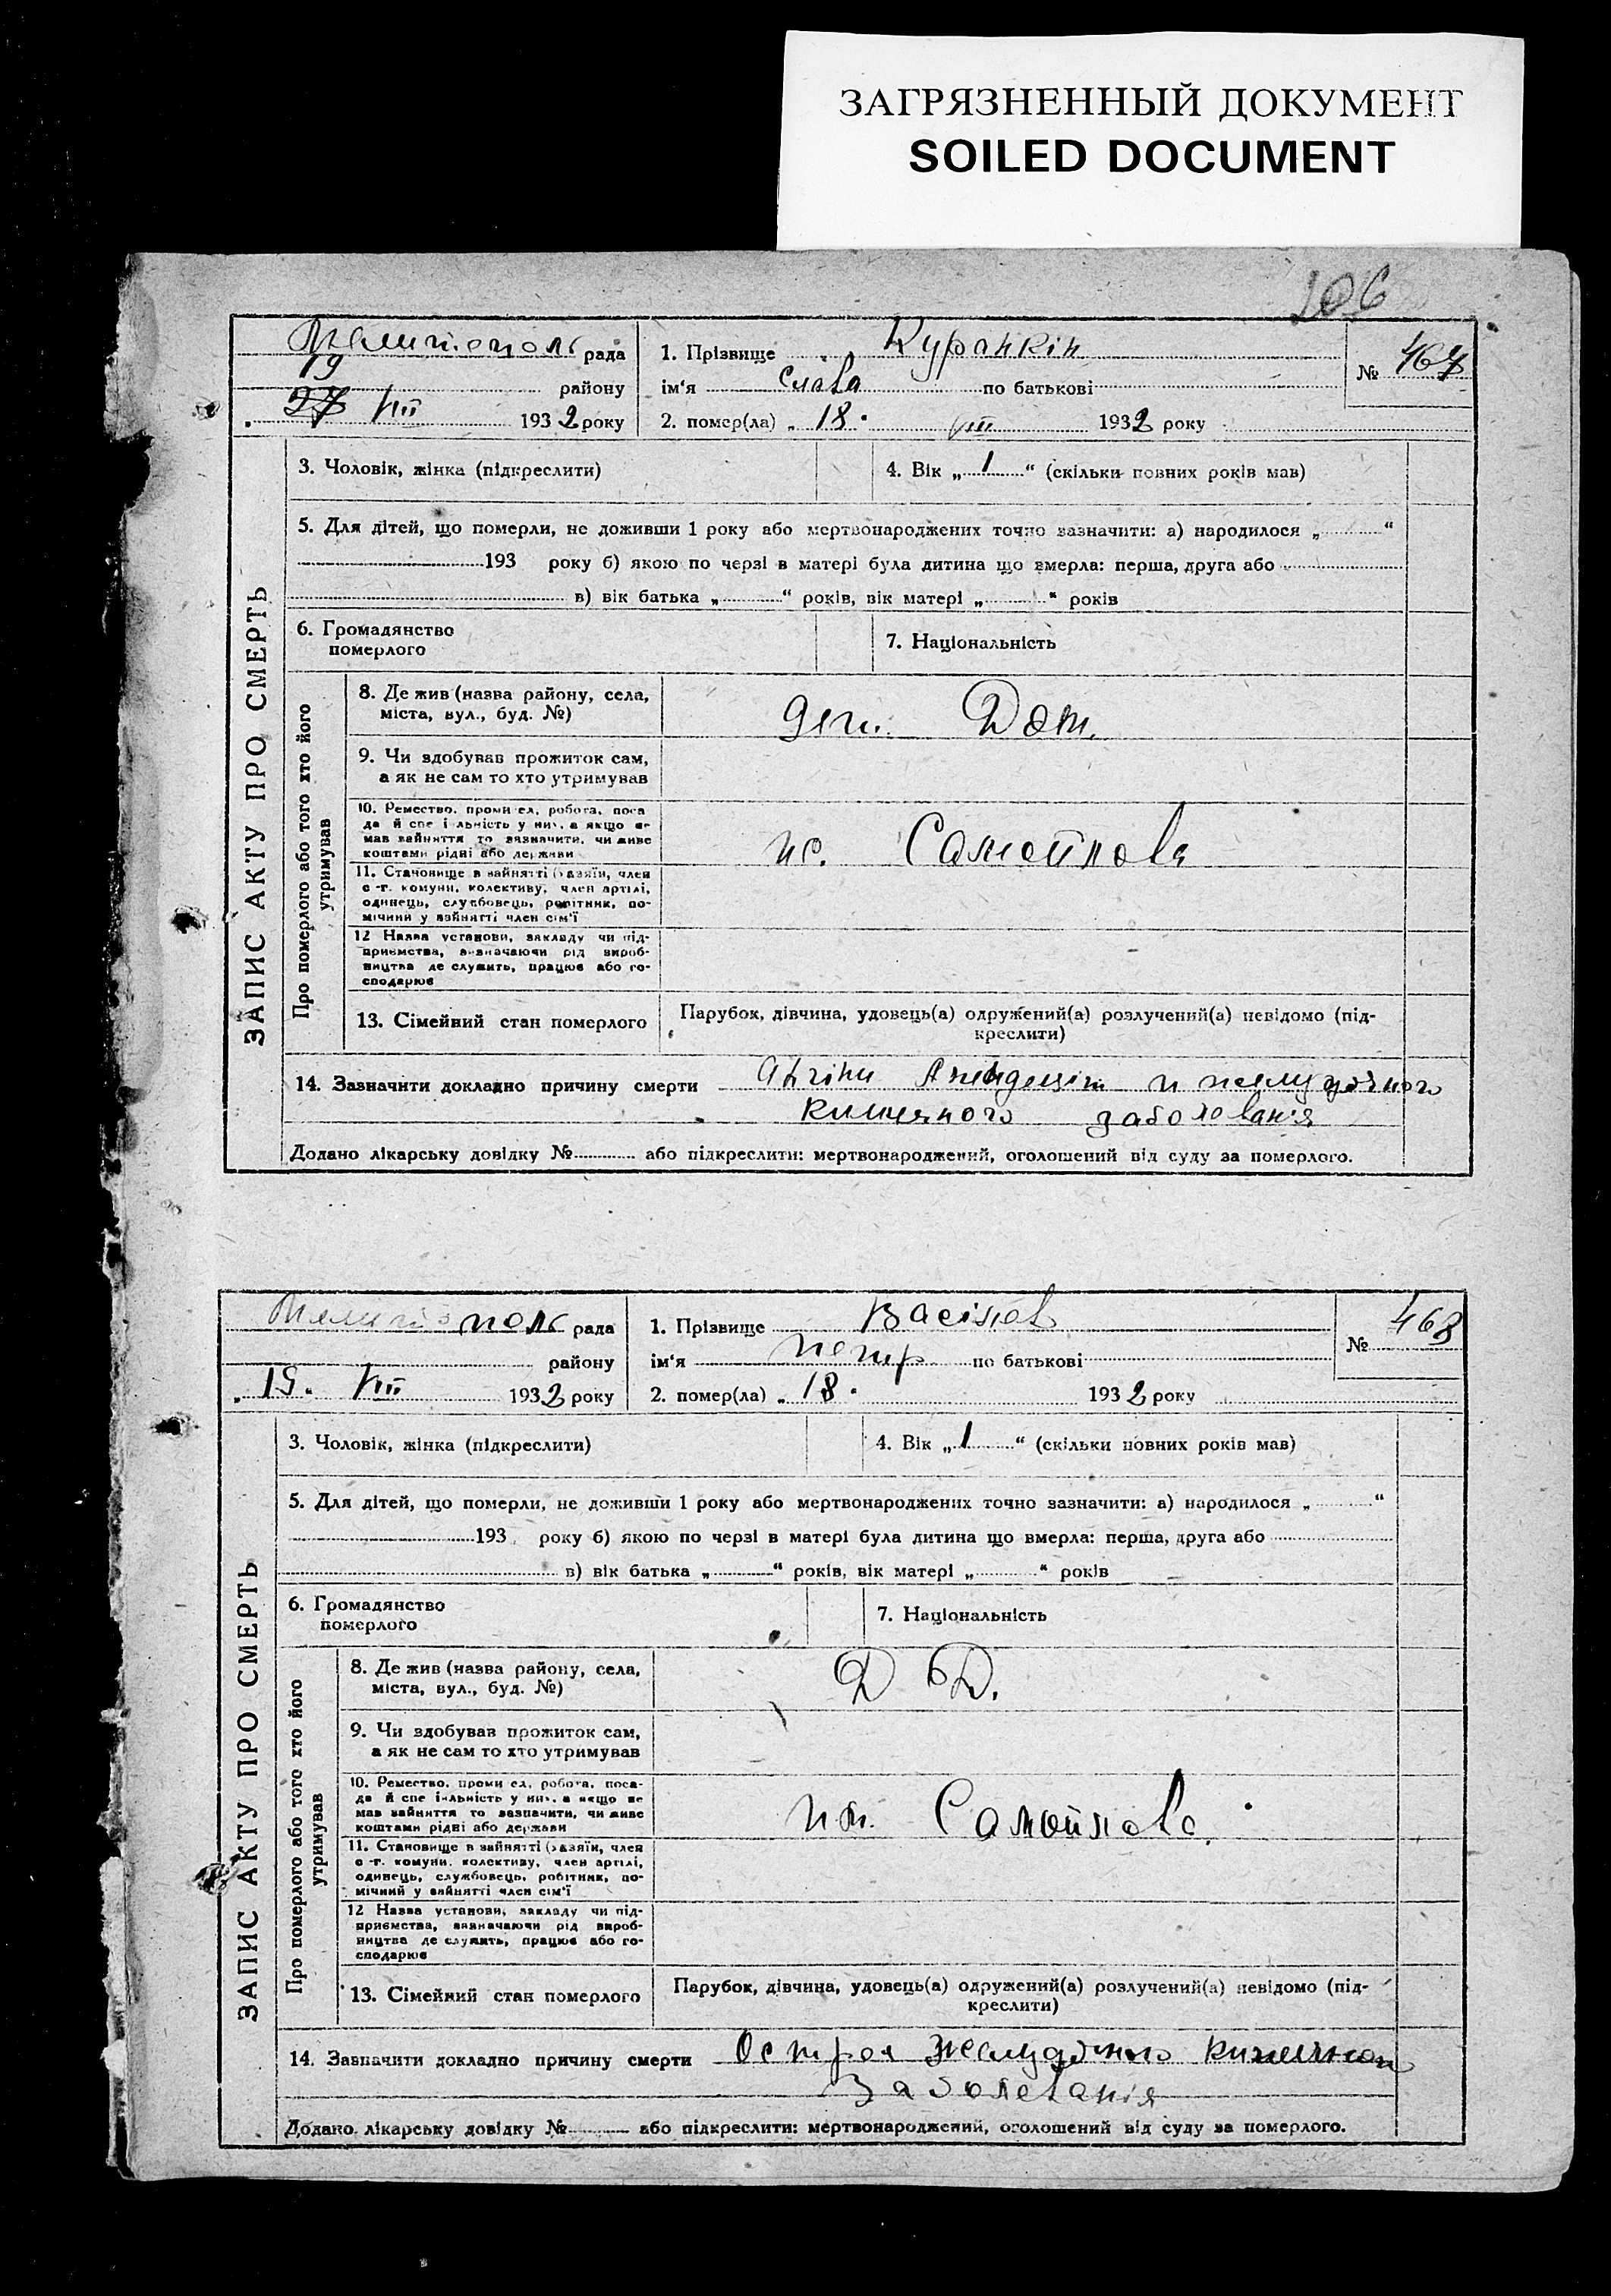 ЗАГРЯЗНЕННЫЙ ДОКУМЕНТ
SOILED DOCUMENT
206
Мелитополь рада
19
району
27 VIII 1932 року
1. Прізвище Куранкін
ім‘я Слава по батькові
2. помер(ла) „ 18 • VIII 1932 року
№ 467
ЗАПИС АКТУ ПРО СМЕРТЬ
3. Чоловік, жінка (підкреслити)
4. Вік „ 1 “ (скільки повних років мав)
5. Для дітей, що померли, не доживши 1 року або мертвонароджених точно зазначити: а) народилося „ “
193 року б) якою по черзі в матері була дитина що вмерла: перша, друга або
в) вік батька „ “ років, вік матері „ “ років
6. Громадянство
померлого
7. Національність
Про померлого або того хто його
утримував
8. Де жив (назва району, села,
міста, вул., буд. №)
дет. Дом.
9. Чи здобував прожиток сам,
а як не сам то хто утримував
10. Ремество, промисел, робота, поса
да й спеціяльність у них, а якщо не
мав зайняття то зазначити, чи живе
коштами рідні або держави
Самойлова
11. Становище в зайнятті (хазяїн, член
с.-г. комуни, колективу, член артілі,
одинець, службовець, робітник, по-
мічний у зайнятті член сім‘ї
12 Назва установи, закладу чи під-
приємства, визначаючи рід вироб-
ництва де служить, працює або го-
сподарює
13. Сімейний стан померлого
Парубок, дівчина, удовець(а) одружений(а) розлучений(а) невідомо (під-
креслити)
14. Зазначити докладно причину смерти
кишечного заболованія
Додано лікарську довідку № або підкреслити: мертвонароджений, оголошений від суду за померлого.
Мелитополь рада
району
„ 19. VIII 1932 року
1. Прізвище Васілєв
ім‘я Петр по батькові
2. помер(ла) „ 18 • 1932 року
№ 468
ЗАПИС АКТУ ПРО СМЕРТЬ
3. Чоловік, жінка (підкреслити)
4. Вік „ 1 “ (скільки повних років мав)
5. Для дітей, що померли, не доживши 1 року або мертвонароджених точно зазначити: а) народилося „ “
193 року б) якою по черзі в матері була дитина що вмерла: перша, друга або
в) вік батька „ “ років, вік матері „ “ років
6. Громадянство
померлого
7. Національність
Про померлого або того хто його
утримував
8. Де жив (назва району, села,
міста, вул., буд. №)
9. Чи здобував прожиток сам,
а як не сам то хто утримував
10. Ремество, промисел, робота, поса-
да й спеціяльність у них, а якщо не
мав зайняття то зазначити, чи живе
коштами рідні або держави
Самойлова.
11. Становище в зайнятті (хазяїн, член
с.-г. комуни, колективу, член артілі,
одинець, службовець, робітник, по-
мічний у зайнятті член сім‘ї
12 Назва установи, закладу чи під-
приємства, визначаючи рід вироб-
ництва де служить, працює або го-
сподарює
13. Сімейний стан померлого
Парубок, дівчина, удовець(а) одружений(а) розлучений(а) невідомо (під-
креслити)
14. Зазначити докладно причину смерти Острая желудочно кишечная
Заболеванія
Додано лікарську довідку № або підкреслити: мертвонароджений, оголошений від суду за померлого.